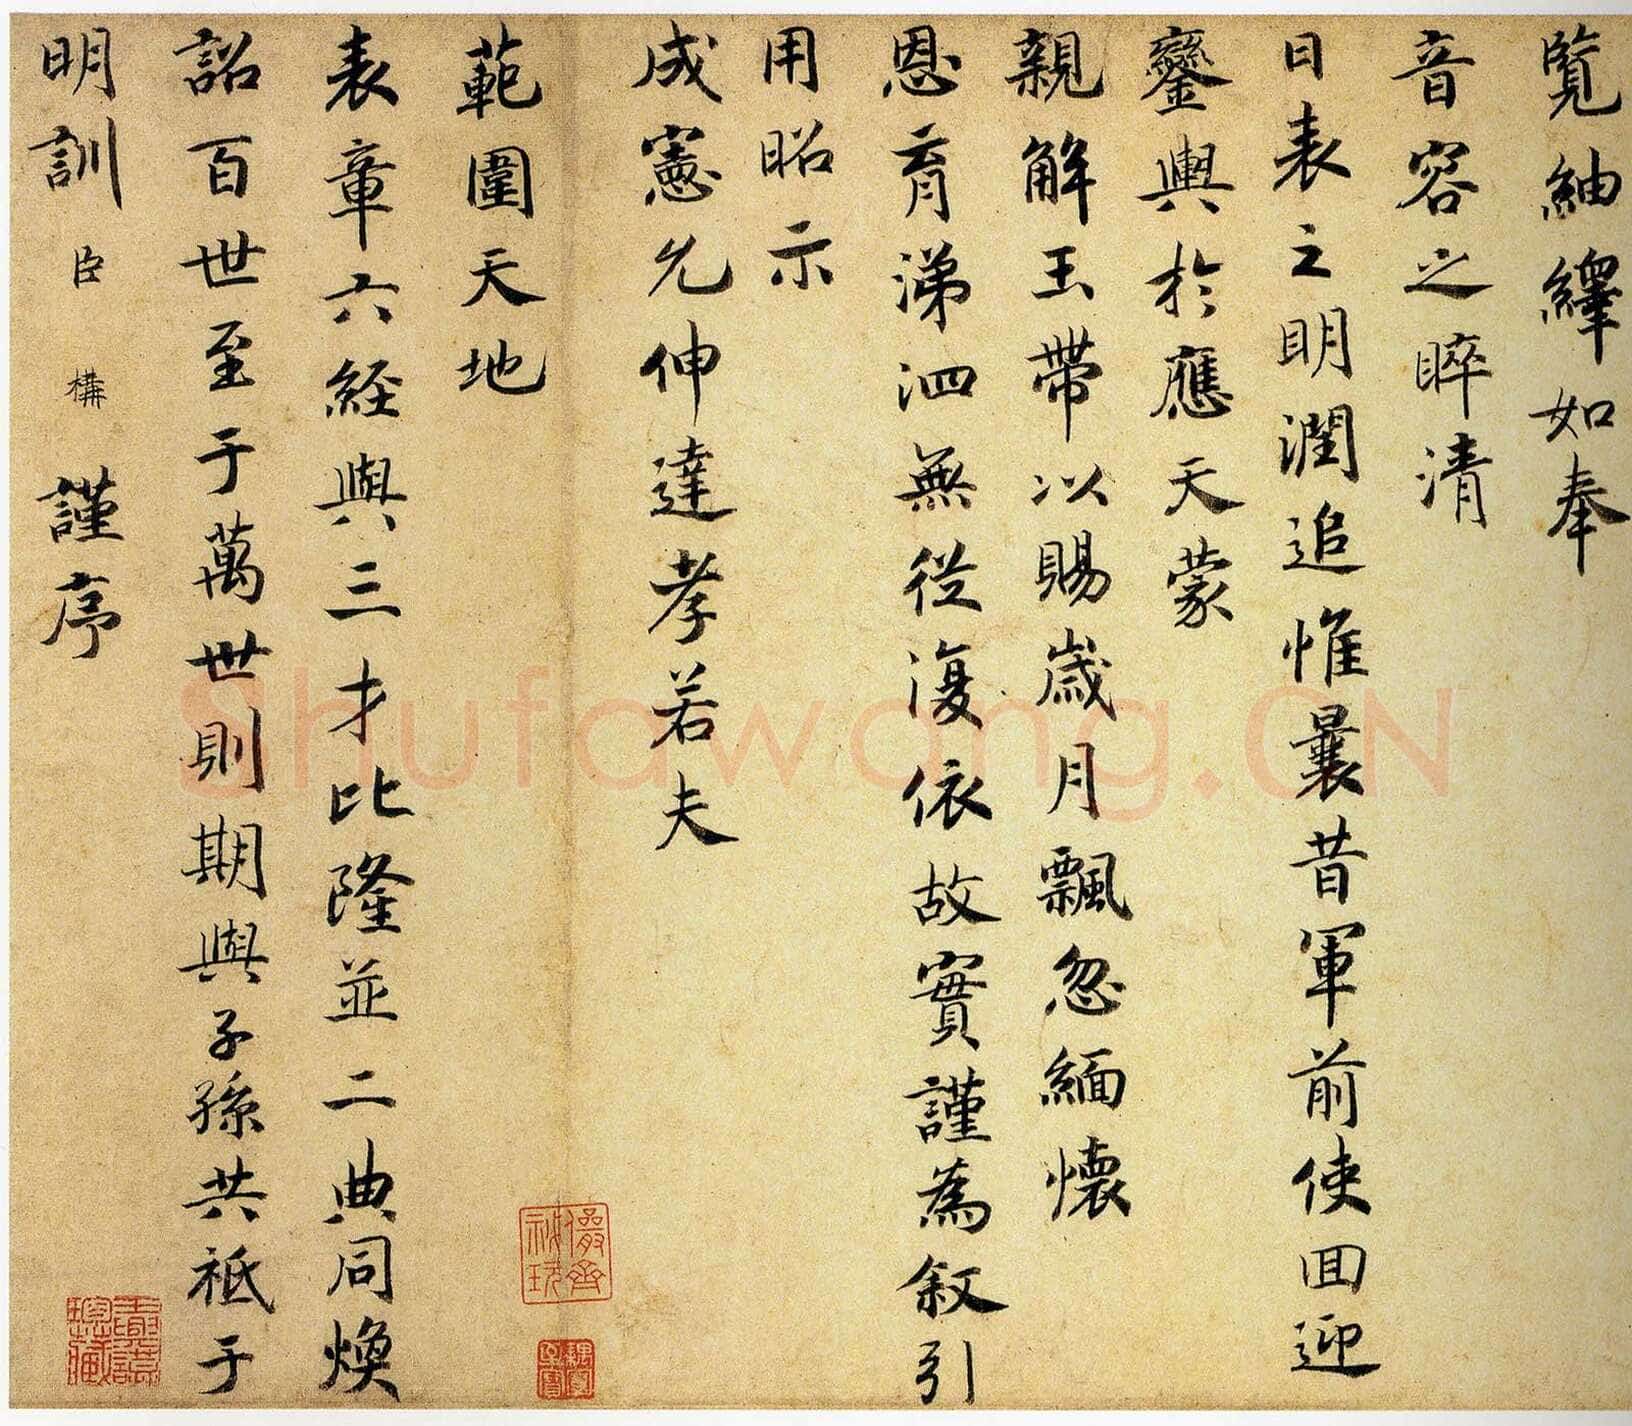 覧紬繹如奉
音容之睟清
日表之明潤追惟曩昔軍前使囬迎
鑾輿於應天蒙
親解玉帶以賜歲月飄忽緬懷
恩育涕泗無從復依故實謹為叙引
用昭示
成憲允伸達孝若夫
範圍天地
表章六經與三才比隆並二典同煥
詔百世至于萬世則期與子孫共祗于
明訓臣構謹序
儼齋秘玩
Shufawang.CN